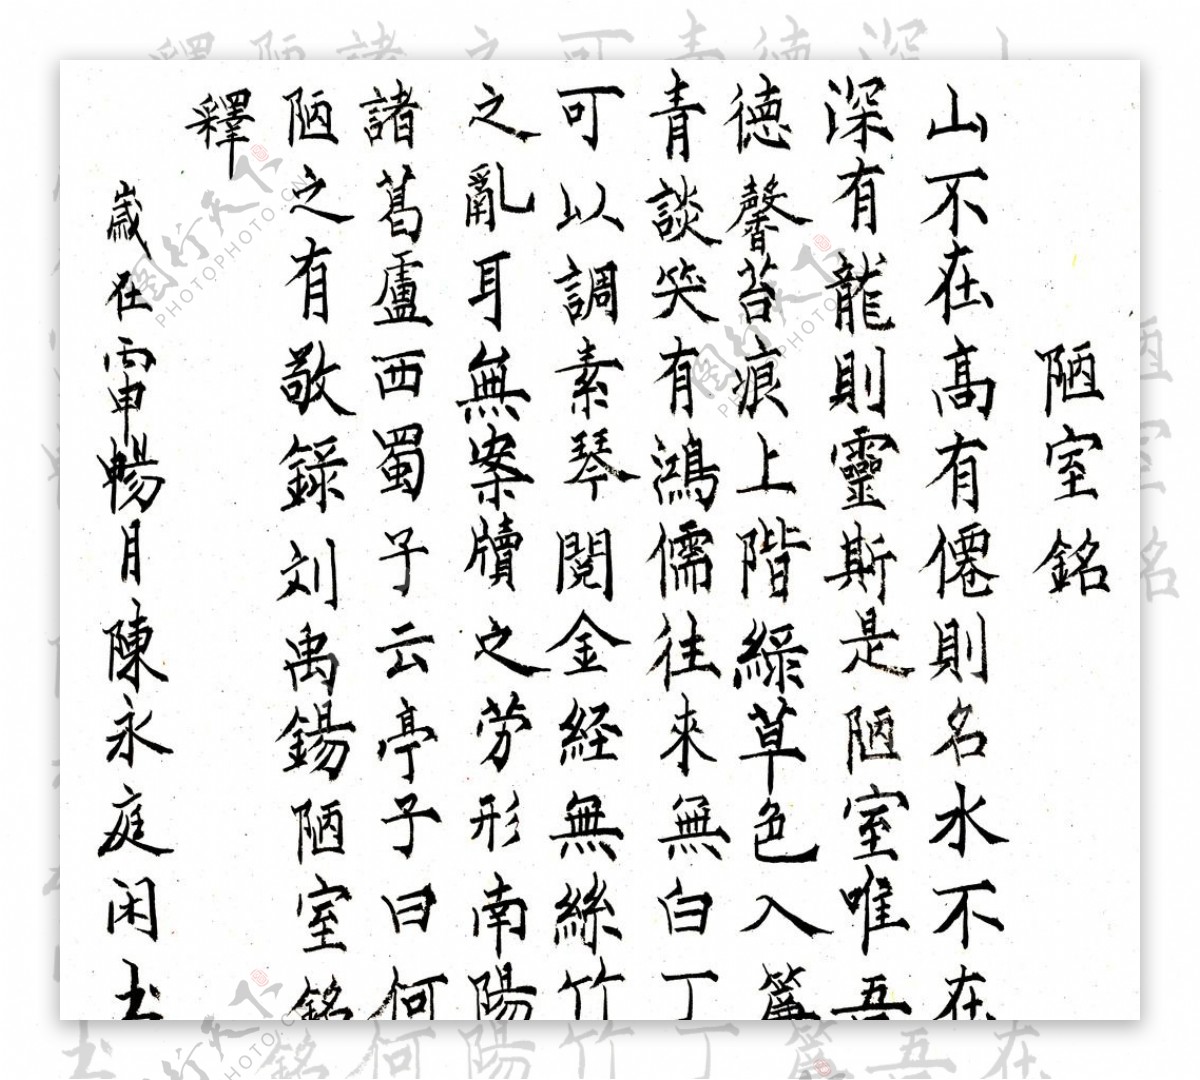 陋室銘
山不在高有僊則名水不在
深有龍則靈斯是陋室唯吾
德馨苔痕上階緑草色入簾
青談笑有鴻儒往來無白丁
可以調素琴閱金经無絲竹
之亂耳無案牘之劳形南陽
諸葛盧西蜀子云亭子曰何
陋之有敬録刘禹錫陋室銘
釋
歲在丙申暢月陳永庭闲书
图行天下
PHOTOPHOTO.CN